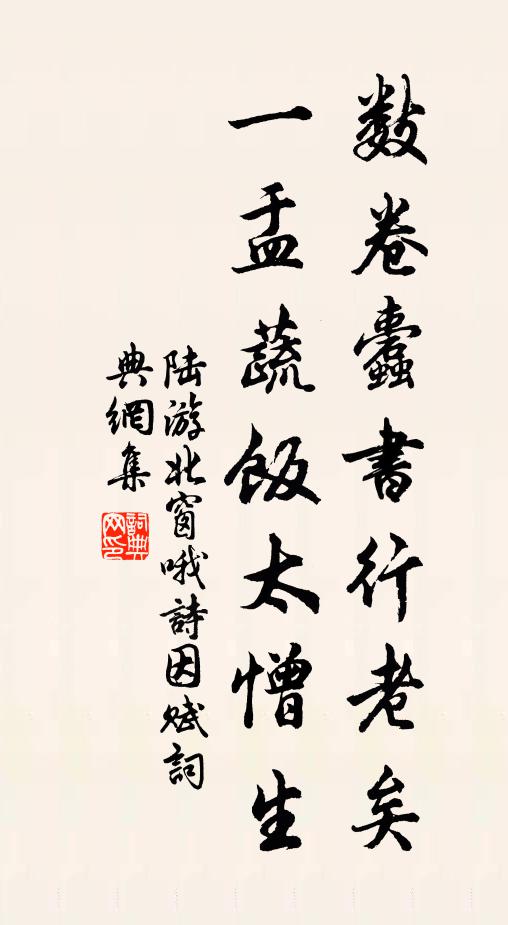 数卷蠹書行老矣
一盂蔬飯太憎生
陆游北窗哦詩因赋詞
典網集
詞典
网印